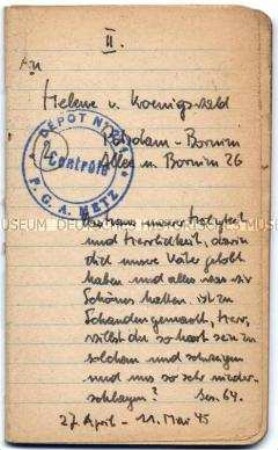 II.
An
Helene v. Koenigswald
Potsdam - Bornim
Allee n. Bornim 26
DEPOT Nº
Controle
P. G. A. METZ
Das Haus unserer Heiligkeit
und Herrlichkeit, darin
dich unsre Väter gelobt
haben und alles was wir
Schönes hatten ist zu
Schanden gemacht, Herr,
willst du so hart sein zu
solchem und schweigen
und uns so sehr nieder-
schlagen? Jes. 64.
27. April - 11. Mai 45